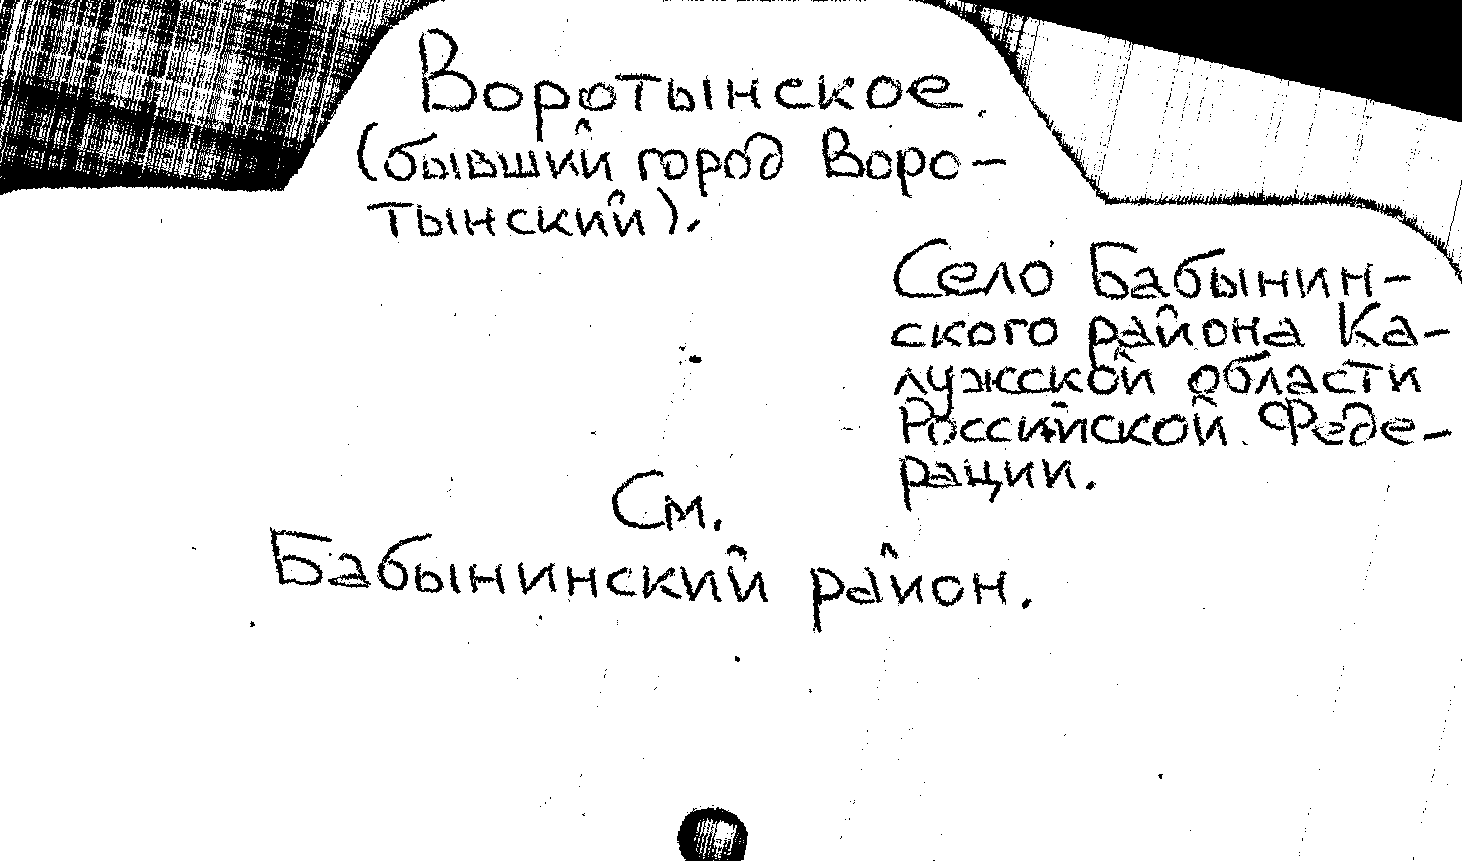 Воротынское.
(бывший город Воро-
тынский).
Село Бабынин-
ского района Ка-
лужской области
Российской Феде-
рации.
См.
Бабынинский район.